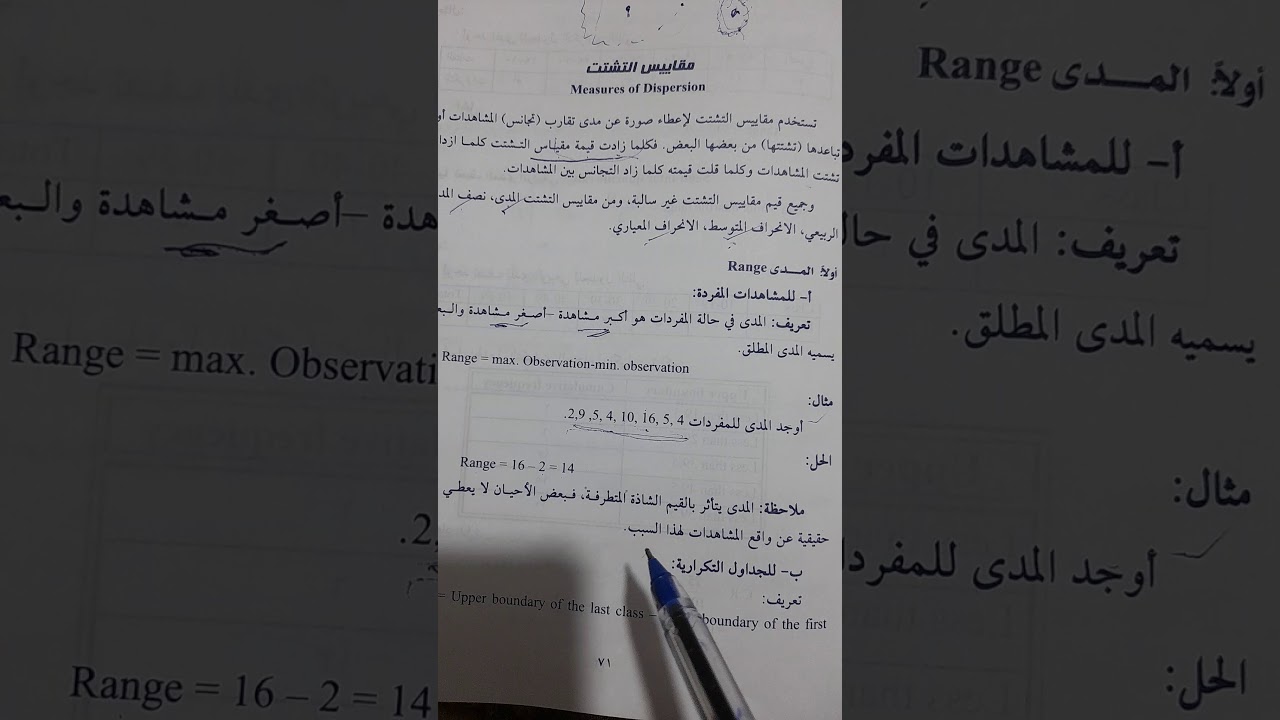 مقاييس التشتت
Measures of Dispersion
تستخدم مقاييس التشتت لإعطاء صورة عن مدى تقارب (تجانس) المشاهدات أو
تباعدها (تشتتها) من بعضها البعض. فكلما زادت قيمة مقياس التشتت كلما ازداد
تشتت المشاهدات وكلما قلت قيمته كلما زاد التجانس بين المشاهدات.
وجميع قيم مقاييس التشتت غير سالبة، ومن مقاييس التشتت المدى، نصف
الربيعي، الانحراف المتوسط، الانحراف المعياري.
أولاً: المـــدى Range
أ- للمشاهدات المفردة:
تعريف: المدى في حالة المفردات هو أكبر مشاهدة –أصغر مشاهدة
يسميه المدى المطلق.
Range = max. Observation-min. observation
مثال:
أوجد المدى للمفردات 2,9 ,5, 4, 10, 16, 5, 4.
الحل:
Range = 16 – 2 = 14
ملاحظة: المدى يتأثر بالقيم الشاذة المتطرفة، فبعض الأحيان لا يعطي
حقيقية عن واقع المشاهدات لهذا السبب.
ب- للجداول التكرارية:
تعريف:
= Upper boundary of the last class – boundary of the first
٧١